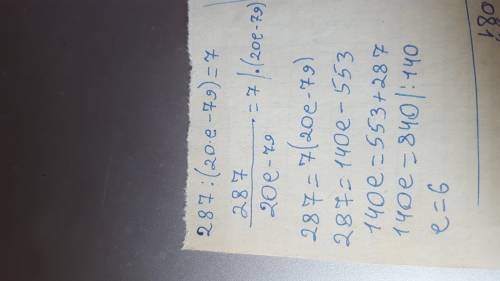 287:(20·e-79)=7
287
20e-79
=7 |·(20e-79)
287=7(20e-79)
287=140e-553
140e=553+287
140e=840|:140
e=6